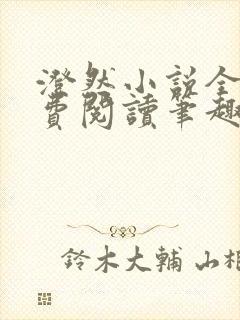 澄然小説全
費閱讀筆趣
鈴木大輔 山相